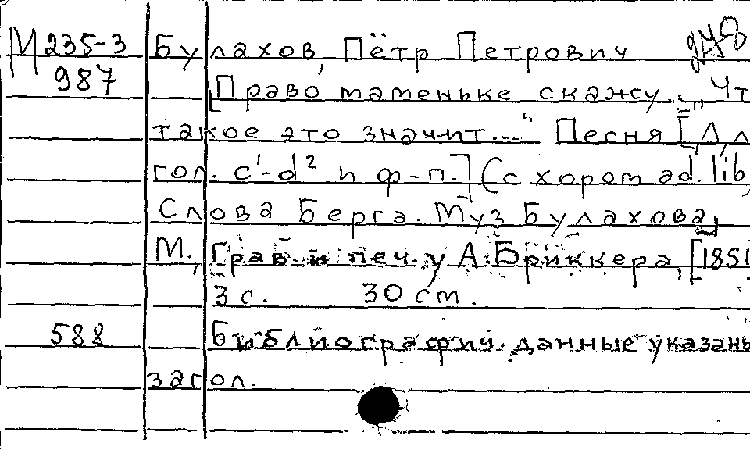 М 235-3 Булахов, Пётр Петрович
987 [Право маменьке скажу... „Чт
такое это значит..." Песня [Для
гол. c¹-d² и ф-п.] (с хором ad. lib,
Слова Берга. Муз Булахова,
М., Грав. и печ. у А. Бриккера, [1851
3 с. 30 см.
588 Библиографич. данные указаны
загол.